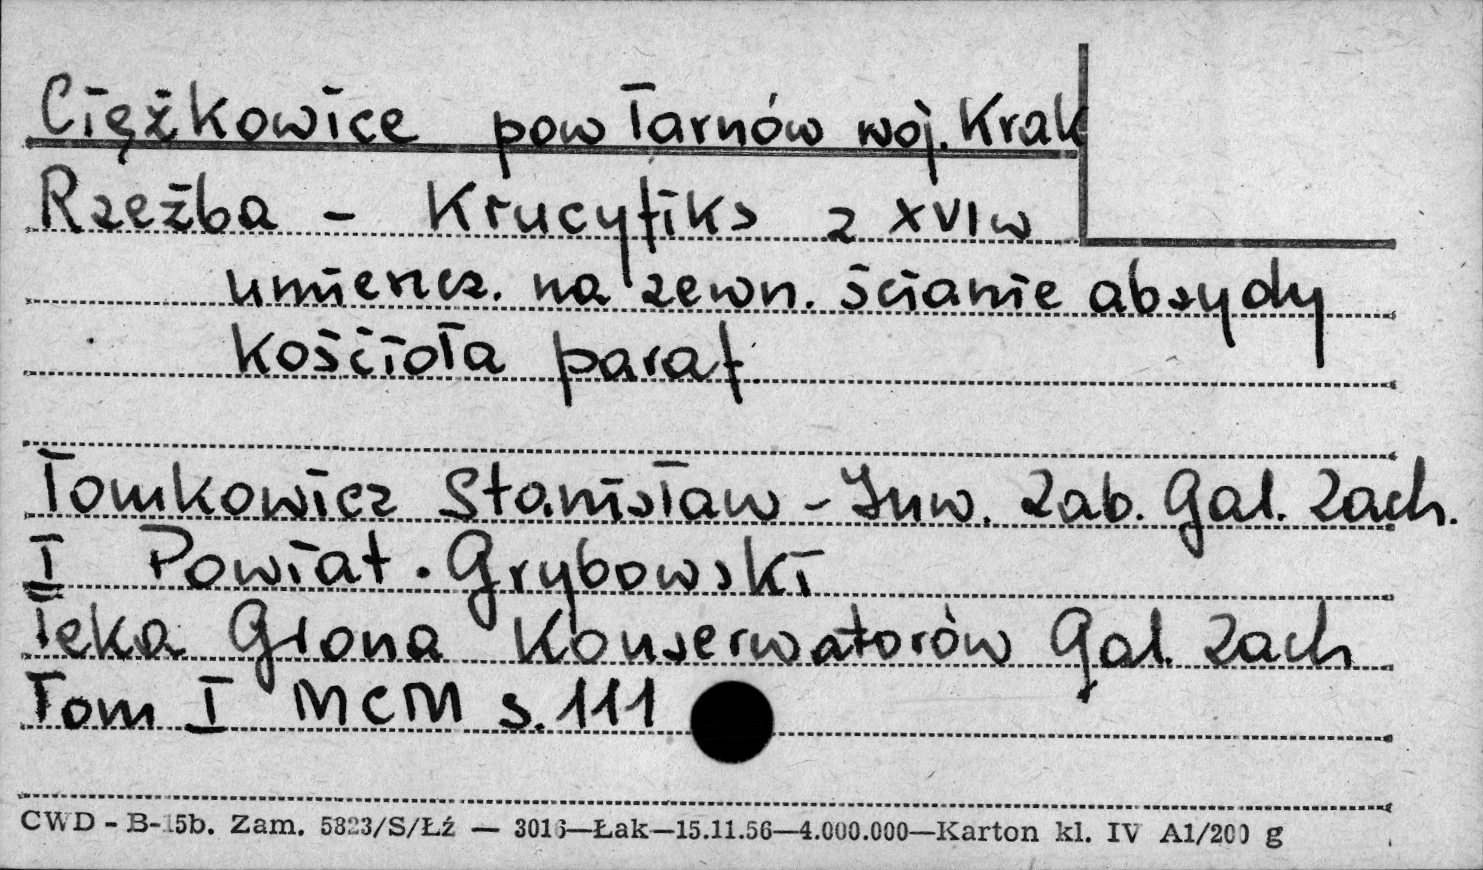 Ciężkowice pow Tarnów woj. Krak
Rzeźba – Krucyfiks z XVI w
umieszcz. na zewn. ścianie absydy
kościoła paraf.
Tomkowicz Stanisław – Inw. Zab. Gal. Zach.
I Powiat. Grybowski
Teka Grona Konserwatorów Gal. Zach
Tom I MCM s. 111
CWD - B-15b. Zam. 5823/S/Łź — 3016—Łak—15.11.56—4.000.000—Karton kl. IV A1/200 g